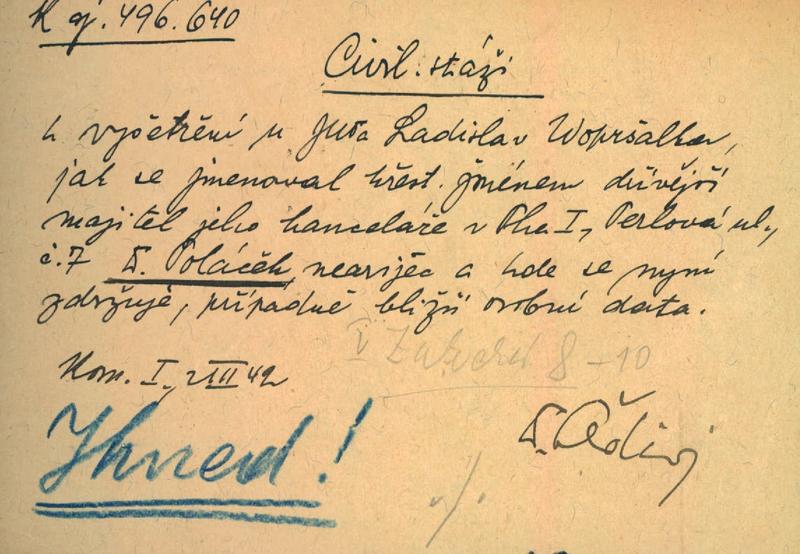 K čj. 496.640
Civil. stáži
k vyšetření u JUDra Ladislav Wopršalka,
jak se jmenoval křest. jménem dřívější
majitel jeho kanceláře v Praze I, Perlová ul.,
č. 7 Dr. Poláček, nearijec a kde se nyní
zdržuje, případně bližší osobní data.
Kom. I, 2 III 42
V 8 - 10
Dr.
Ihned!